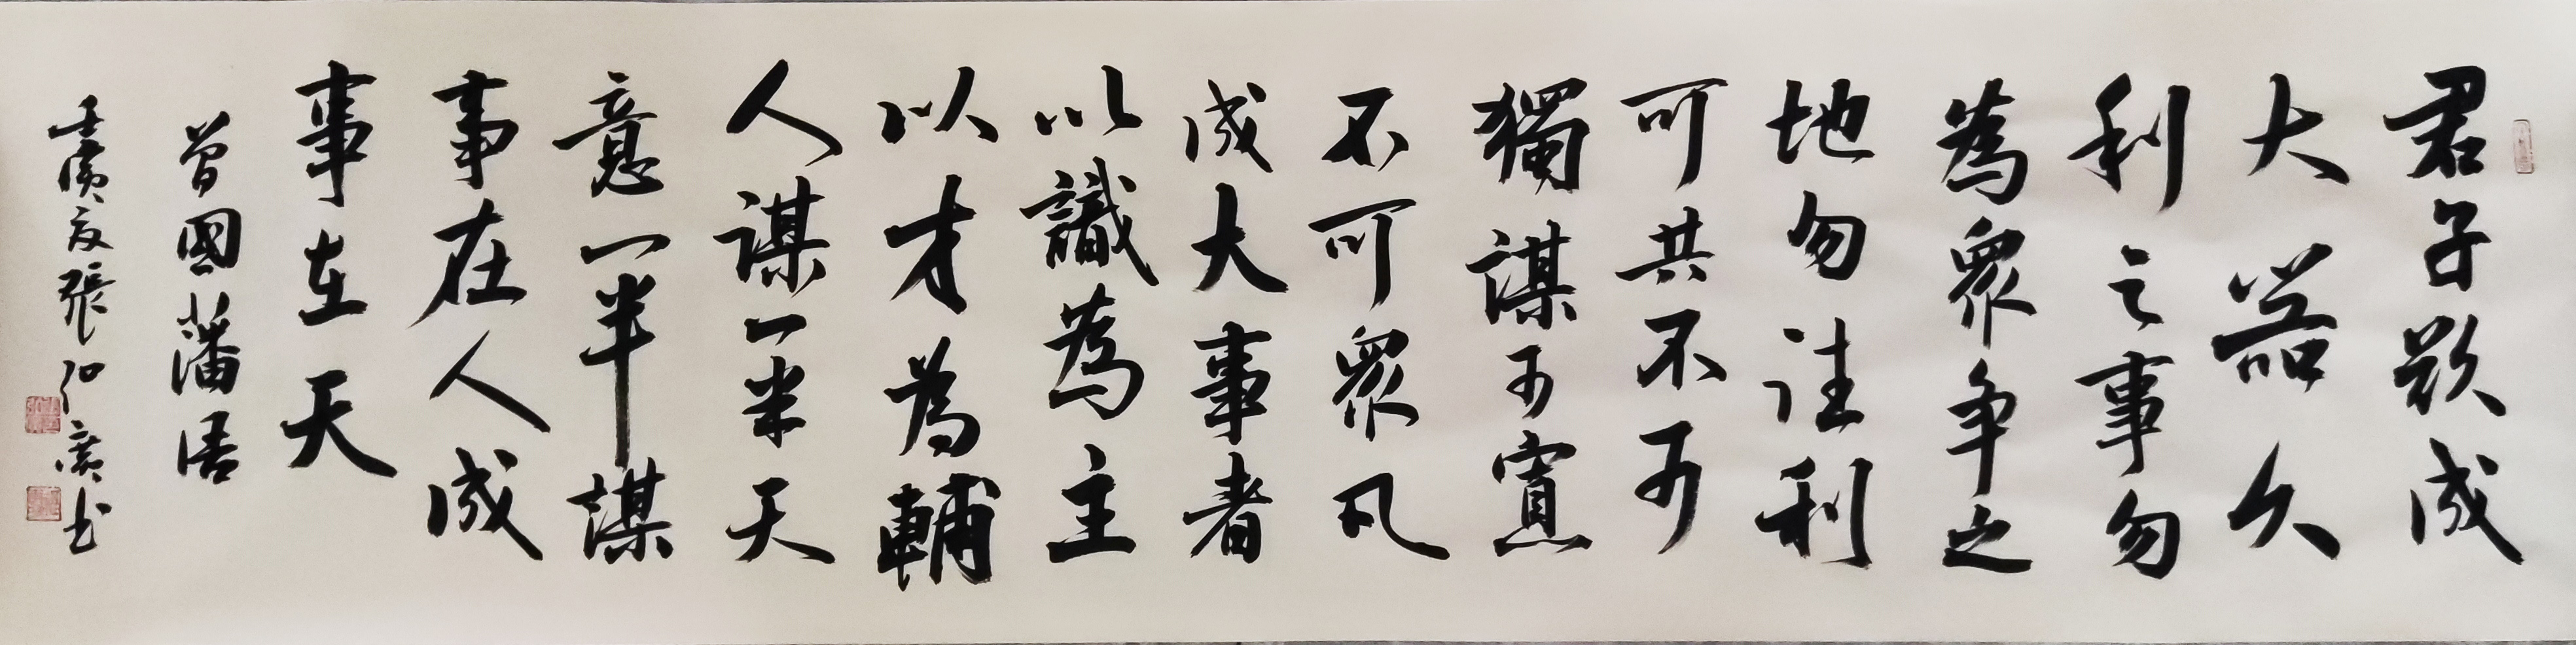 君子欲成
大器久
利之事勿
為眾争之
地勿往利
可共不可
獨謀可寡
不可眾凡
成大事者
以識為主
以才為輔
人謀一半天
意一半謀
事在人成
事在天
曾國藩语
壬寅夏張弘廣书